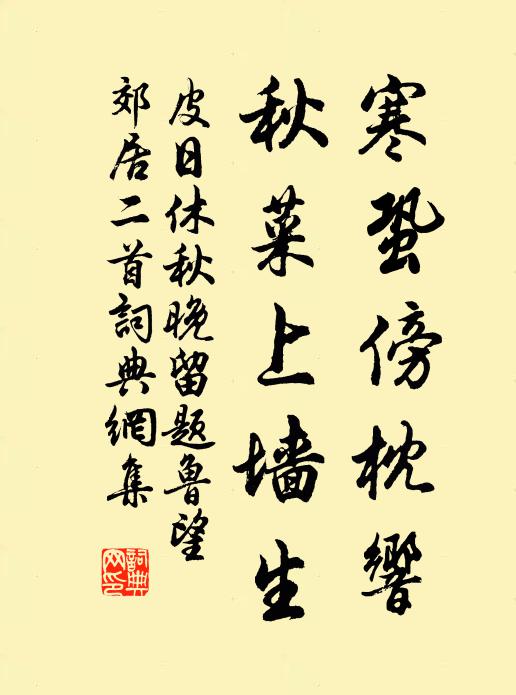 寒蛩傍枕響
秋菜上墙生
皮日休秋晚留题魯望
郊居二首詞典網集
詞典网印